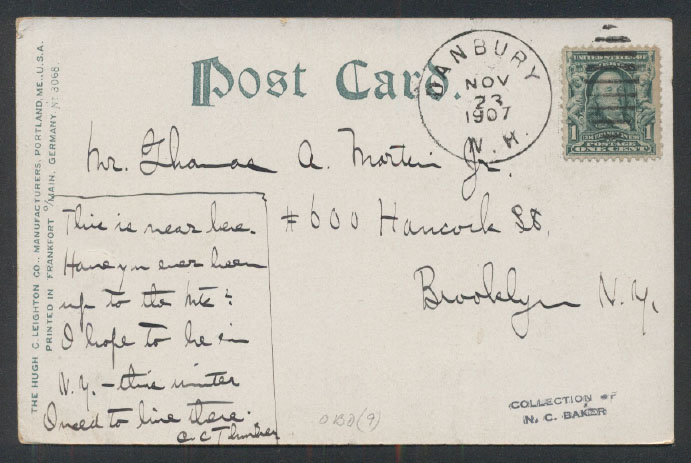 Post Card.
DANBURY
NOV
23
1907
N. H.
UNITED STATES
1 1
POSTAGE
ONE CENT
Mr. Thomas A. Martin Jr.
#600 Hancock St.
Brooklyn N.Y.
This is near here.
Have you ever been
up to the Mts?
I hope to be in
N.Y. - this winter
I used to live there.
THE HUGH C. LEIGHTON CO., MANUFACTURERS, PORTLAND, ME., U.S.A.
PRINTED IN FRANKFORT o/MAIN, GERMANY No 3068.
COLLECTION OF
N. C. BAKER